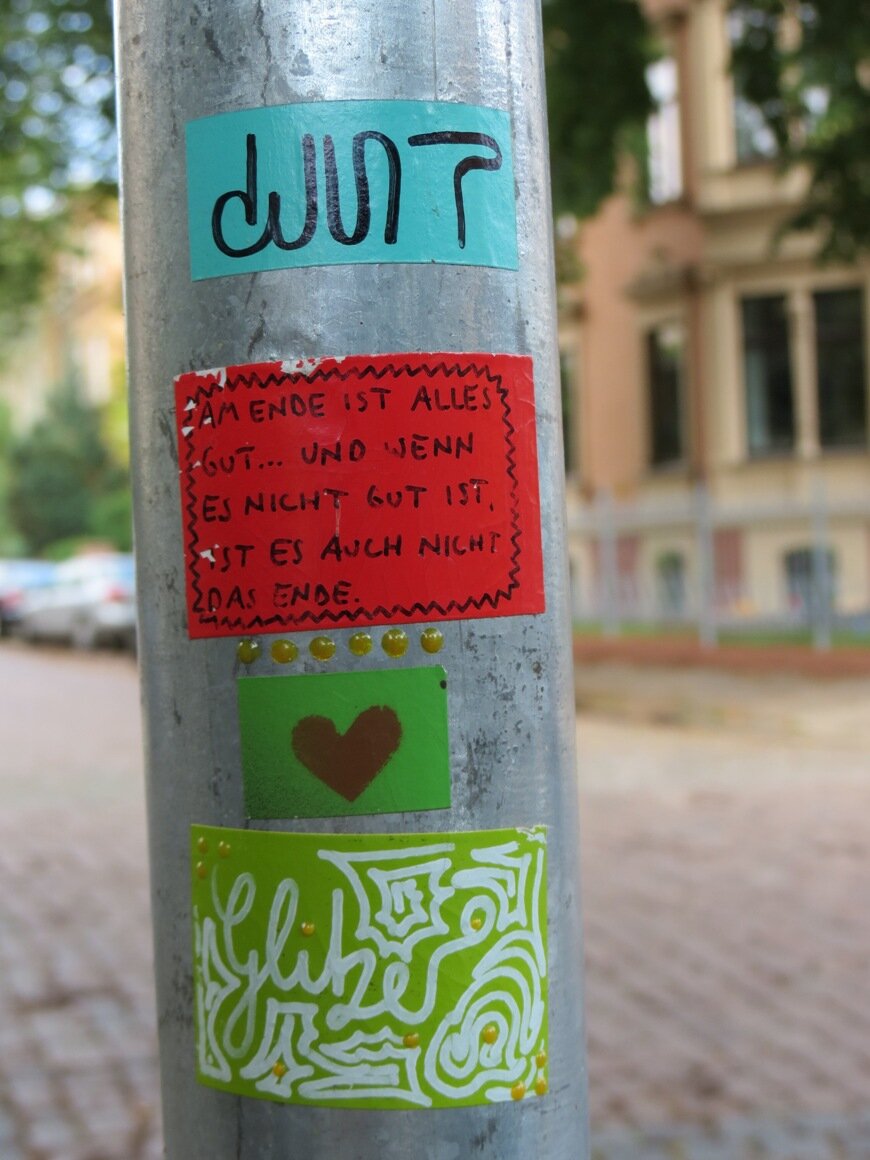 AM ENDE IST ALLES
GUT... UND WENN
ES NICHT GUT IST,
IST ES AUCH NICHT
DAS ENDE.
Glitzer